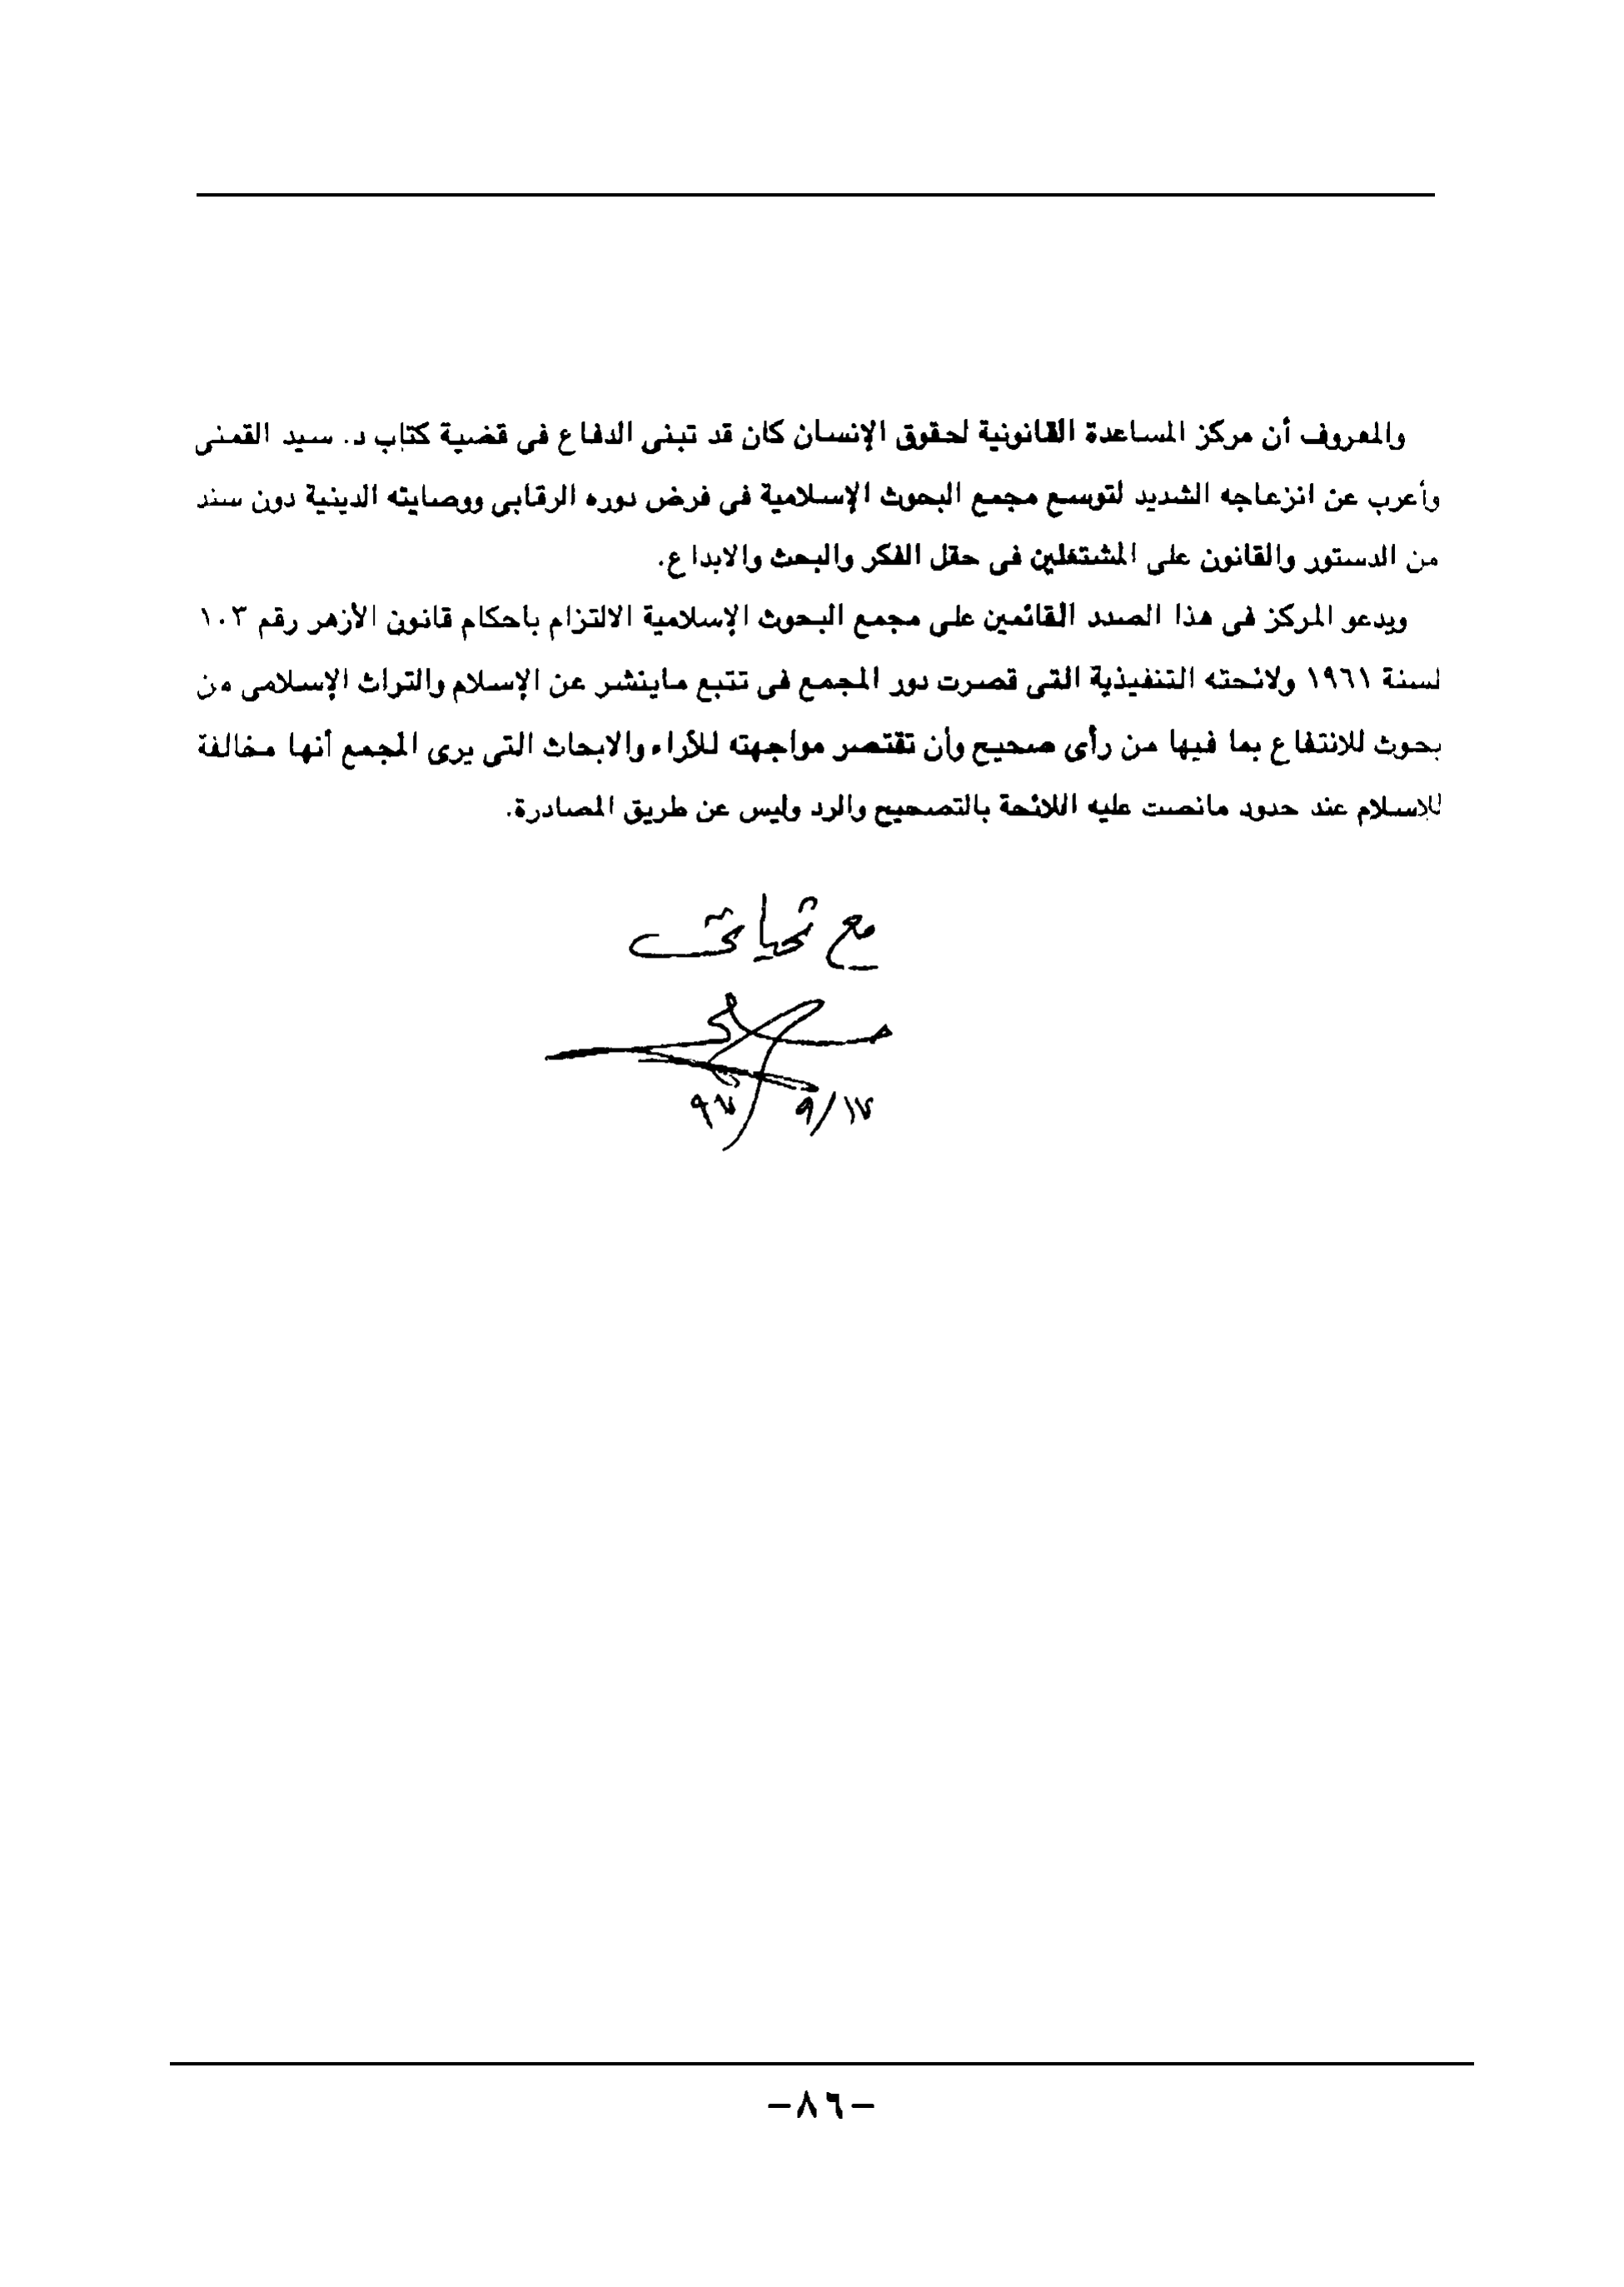 والمعروف أن مركز المساعدة القانونية لحقوق الإنسان كان قد تبنى الدفاع فى قضية كتاب د. سيد القمنى
وأعرب عن انزعاجه الشديد لتوسع مجمع البحوث الإسلامية فى فرض دوره الرقابي ووصايته الدينية دون سند
من الدستور والقانون على المشتغلين فى حقل الفكر والبحث والابداع.
ويدعو المركز فى هذا الصدد القائمين على مجمع البحوث الإسلامية الالتزام باحكام قانون الأزهر رقم ١٠٣
لسنة ١٩٦١ ولائحته التنفيذية التى قصرت دور المجمع فى تتبع ماينشر عن الإسلام والتراث الإسلامى من
بحوث للانتفاع بما فيها من رأى صحيح وأن تقتصر مواجهته للأراء والابحاث التى يرى المجمع أنها مخالفة
للإسلام عند حدود مانصت عليه اللائحة بالتصحيح والرد وليس عن طريق المصادرة.
مع تحياتى
١٧/٩ ٩٧
-٨٦-